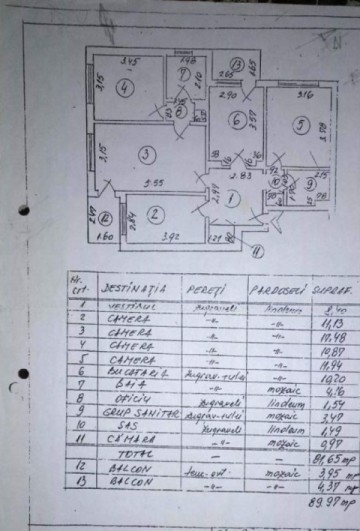 3.45
1.48
13
2.65
1.65
3.15
4
7
2.10
2.90
3.16
6
3.57
5
3.78
3.15
3
5.55
2.83
10
9
2.47
12
2.84
2
2.94
1
1.60
3.92
11
Nr. crt. DESTINAȚIA PEREȚI PARDOSELI SUPRAF.
1 VESTIBUL zugraveli linoleum
2 CAMERA -"- -"- 11,13
3 CAMERA -"- -"- 17,48
4 CAMERA -"- -"- 10,87
5 CAMERA -"- -"- 11,94
6 BUCATARIA zugrav-ulei -"- 10,20
7 BAIA -"- mozaic 4,16
8 OFICIU zugraveli linoleum 1,54
9 GRUP SANITAR zugrav-ulei mozaic 2,47
10 SAS zugraveli linoleum 1,49
11 CĂMARA -"- mozaic 0,97
TOTAL — — 81,65 mp
12 BALCON mozaic 3,95 mp
13 BALCON -"- -"- 4,37 mp
89.97 mp